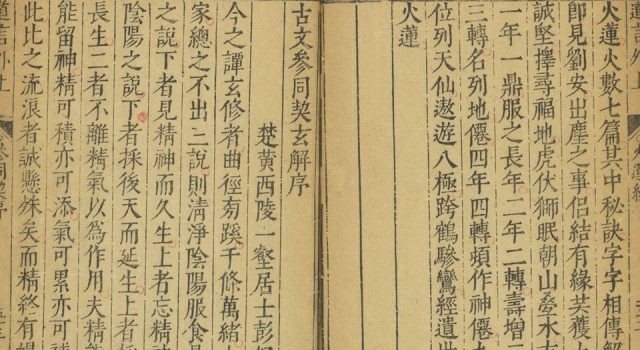 火蓮火數七篇其中秘訣字字相傳解
卽見劉安出塵之事侶結有緣共獲
誠堅擇尋福地虎伏獅眠朝山水
一年一鼎服之長年二年二轉壽增
三轉名列地僊四年四轉頓作神僊
位列天仙遨遊八極跨鶴驂鸞經遺出
火蓮
古文參同契玄解序
楚黃西陵一壑居士彭
今之譚玄修者曲徑旁蹊千條萬緒
家總之不出二說則清淨陰陽服食
之說下者見精神而久生上者忘精
陰陽之說下者採後天而延生上者
長生二者不離精氣以為作用夫精
能留神精可積亦可添氣可累亦可
此比之流浪者誠懸殊矣而精終有
道言外